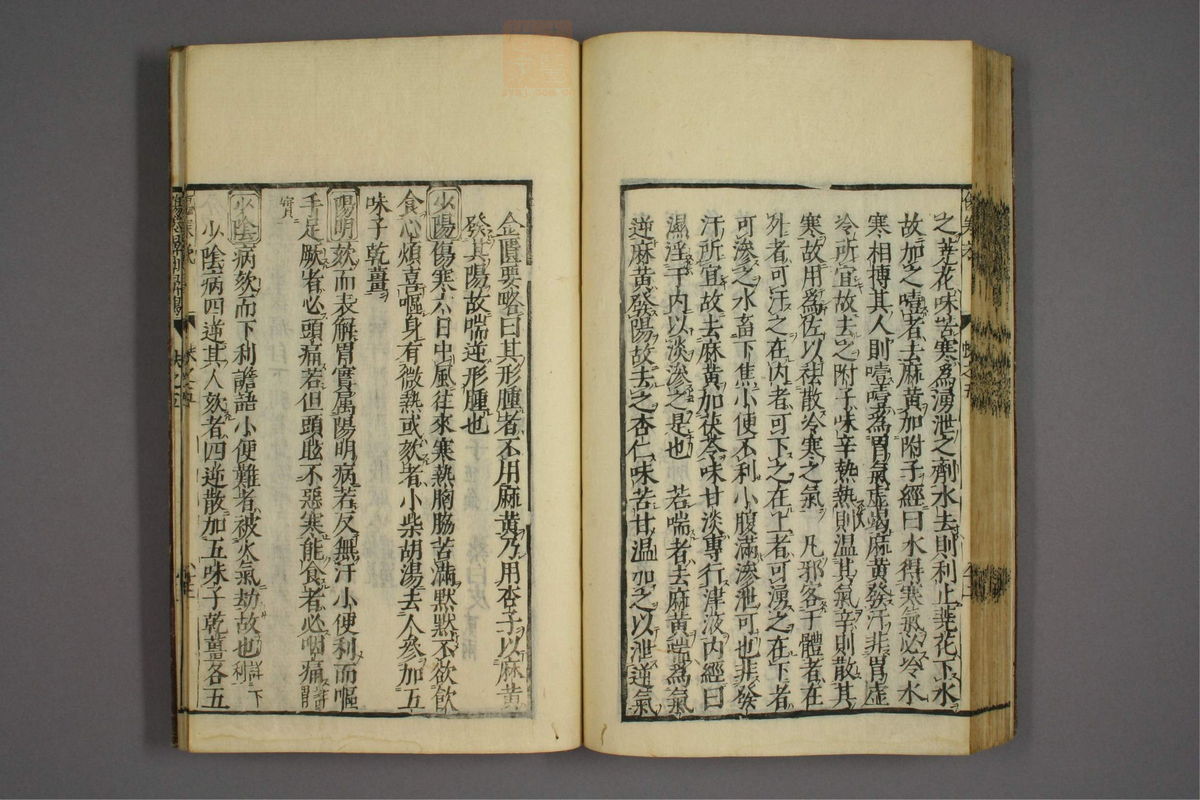 之蕘花味苦寒爲湧泄之劑水去則利止蕘花下水
故加之噎者去麻黄加附子經曰水得寒氣必冷水
寒相搏其人則噎噎爲胃氣虚竭麻黄發汗非胃虚
冷所宜故去之附子味辛熱熱則温其氣辛則散其
寒故用爲佐以祛散冷寒之氣 凡邪客于體者在
外者可汗之在内者可下之在上者可湧之在下者
可滲之水畜下焦小便不利小腹滿滲泄可也非發
汗所宜故去麻黄加茯苓味甘淡專行津液内經曰
濕淫于内以淡滲之是也 若喘者去麻黄喘爲氣
逆麻黄發陽故去之杏仁味苦甘温加之以泄逆氣
金匱要略曰其形腫者不用麻黄乃用杏子以麻黄
發其陽故喘逆形腫也
少陽傷寒六日中風往來寒熱胸脇苦滿默默不欲飲
食心煩喜嘔身有微熱或欬者小柴胡湯去人參加五
味子乾薑
陽明欬而表解胃實属陽明病若反無汗小便利而嘔
手足厥者必頭痛若但頭眩不惡寒能食者必咽痛
實
少陰病欬而下利譫語小便難者被火氣劫故也 詳下利
少陰病四逆其人欬者四逆散加五味子乾薑各五